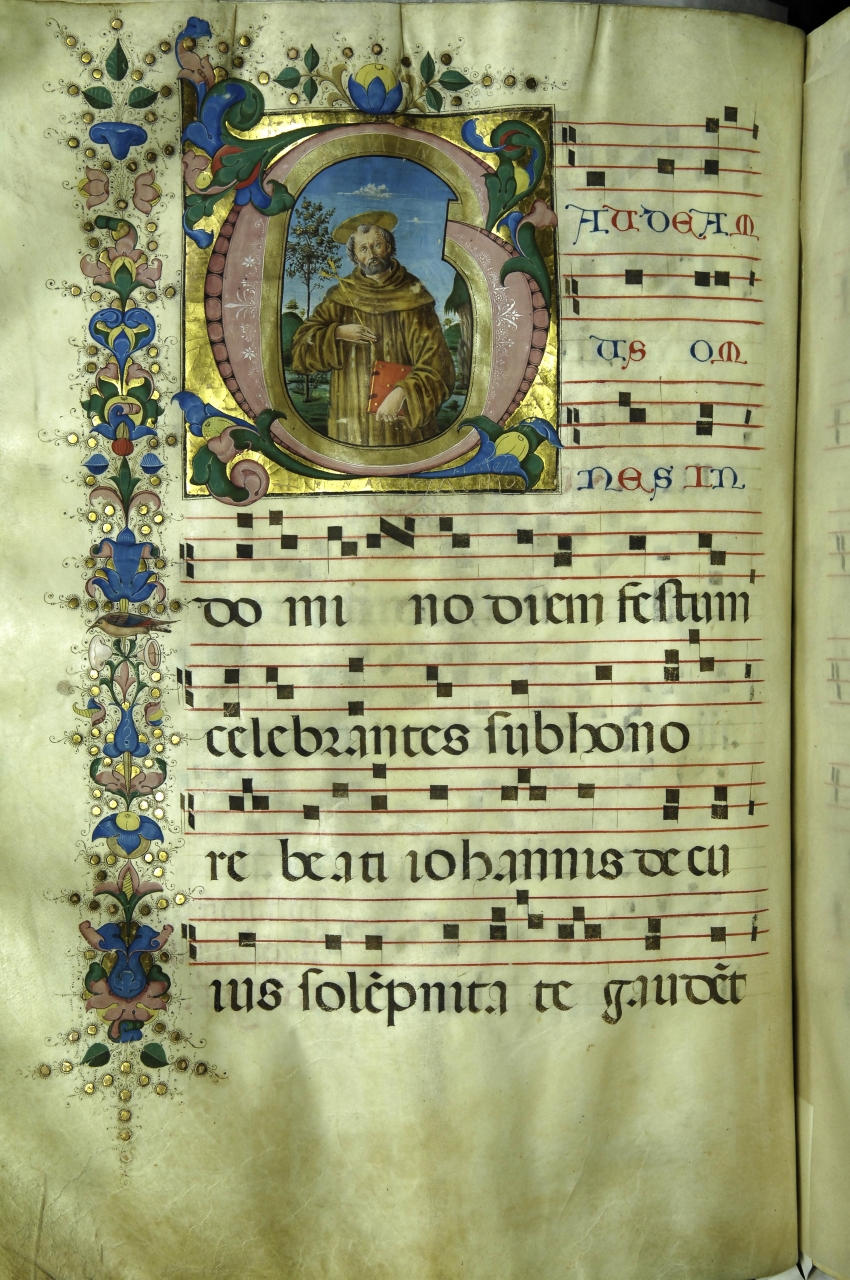 GAUDEAM
US OM
NES IN
do mi no diem festum
celebrantes sub hono
re be ati iohannis de cu
ius solēpnita te gaudēt